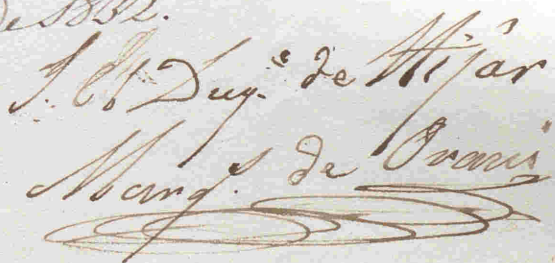 de 1832.
J. El Duq.e de Hijar
Marq.s de Orani